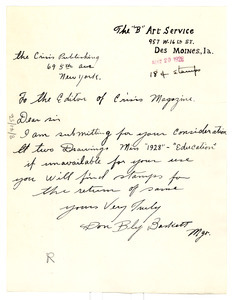 The "B" Art Service
957 W-16th ST.
DES MOINES, Ia.
the Crisis Publishing
69 5th ave
New York.
18¢ stamps
To the Editor of Crisis Magazine.
Dear sir
I am submitting for your Consideration
two Drawings "1928" - "Education"
if unavailable for your use
you will find stamps for
the return of same
yours Very Truly
Mgr.
R